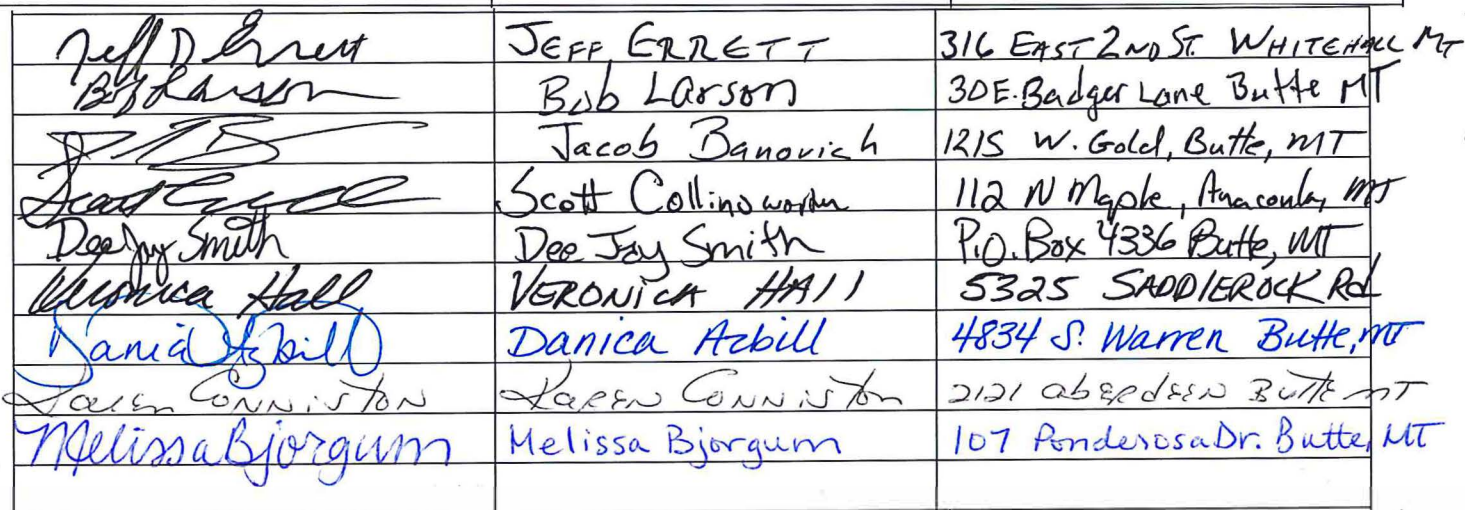 Jeff D Errett JEFF ERRETT 316 EAST 2ND ST. WHITEHALL MT
Bob Larson Bob Larson 30 E. Badger Lane Butte MT
Jacob Banovich 1215 W. Gold, Butte, MT
Scott Collinsworth 112 N Maple, Anaconda, MT
Dee Jay Smith Dee Jay Smith P.O. Box 4336 Butte, MT
Veronica Hall VERONICA HAll 5325 SADDlEROCK Rd
Danica Azbill Danica Azbill 4834 S. Warren Butte, MT
Karen Conniston KAREN CONNISTON 2121 abERdEEN Butte MT
Melissa Bjorgum Melissa Bjorgum 107 Ponderosa Dr. Butte, MT